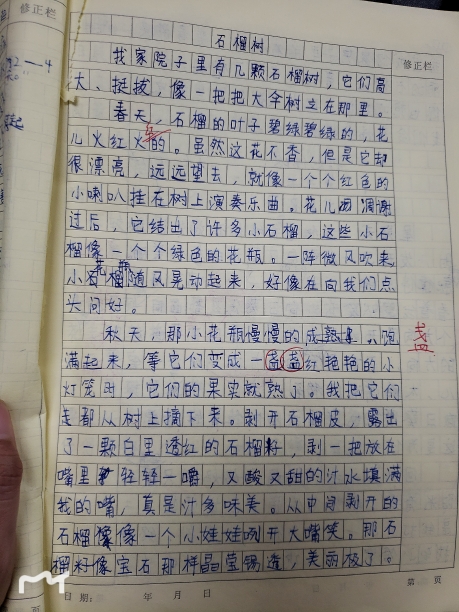 修正栏
石榴树
修正栏
我家院子里有几颗石榴树，它们高
大、挺拔，像一把把大伞树立在那里。
春天，石榴的叶子碧绿碧绿的，花
儿火红火的。虽然这花不香，但是它却
很漂亮，远远望去，就像一个个红色的
小喇叭挂在树上演奏乐曲。花儿凋谢
过后，它结出了许多小石榴，这些小石
榴像一个个绿色的花瓶。一阵微又吹来
花瓶
小石榴随又晃动起来，好像在向我们点
头问好。
秋天，那小花瓶慢慢的成熟，饱
满起来，等它们变成一盏盏红艳艳的小
盏
灯笼时，它们的果实就熟了。我把它们
都从树上摘下来。剥开石榴皮，露出
了一颗白里透红的石榴籽，剥一把放在
嘴里轻轻一嚼，又酸又甜的汁水填满
我的嘴，真是汁多味美。从中间剥开的
石榴像一个小娃娃咧开大嘴笑。那石
榴籽像宝石那样晶莹锡透，美丽极了。
日期： 年 月 日 第 页
页